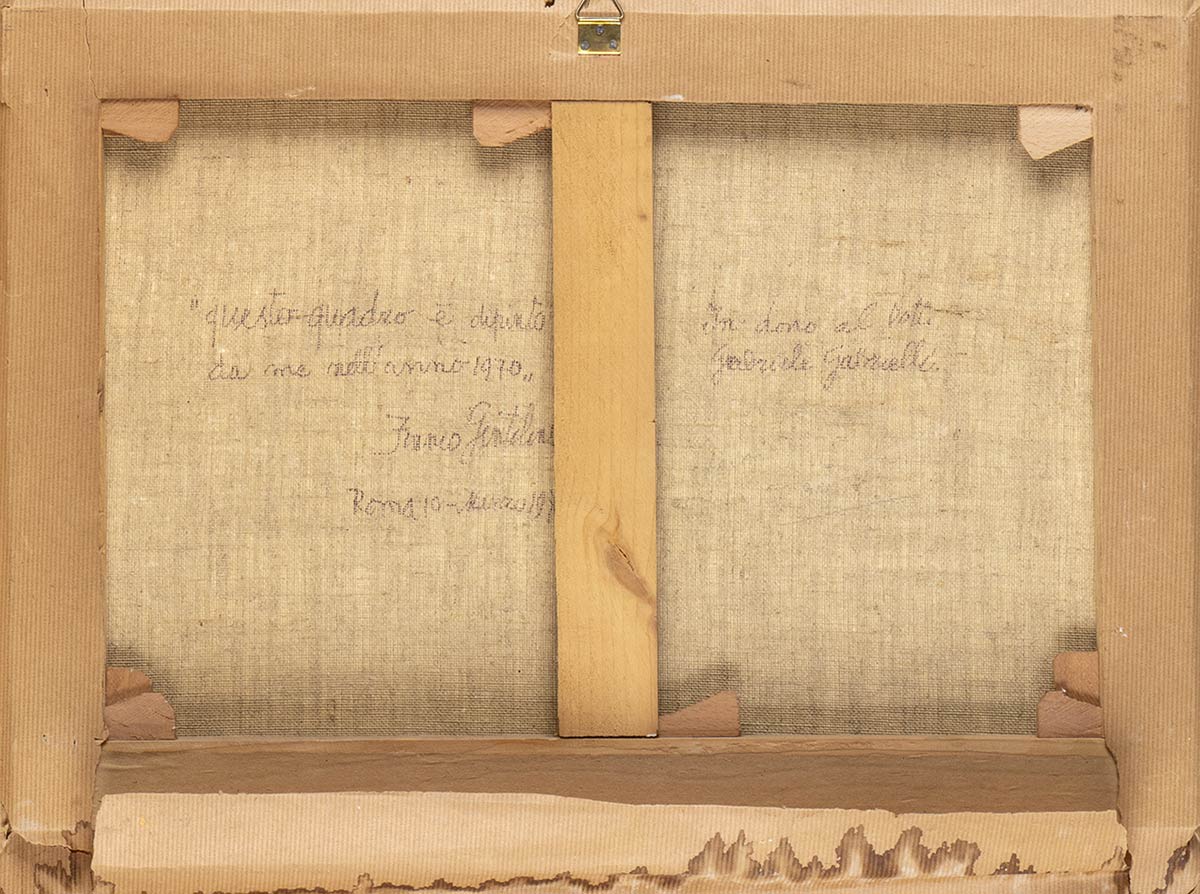 "questo quadro è dipinto
da me nell'anno 1970„
Franco Gentilini
Roma 10-Marzo 197
In dono al Dott.
Gabriele Gabrielli.